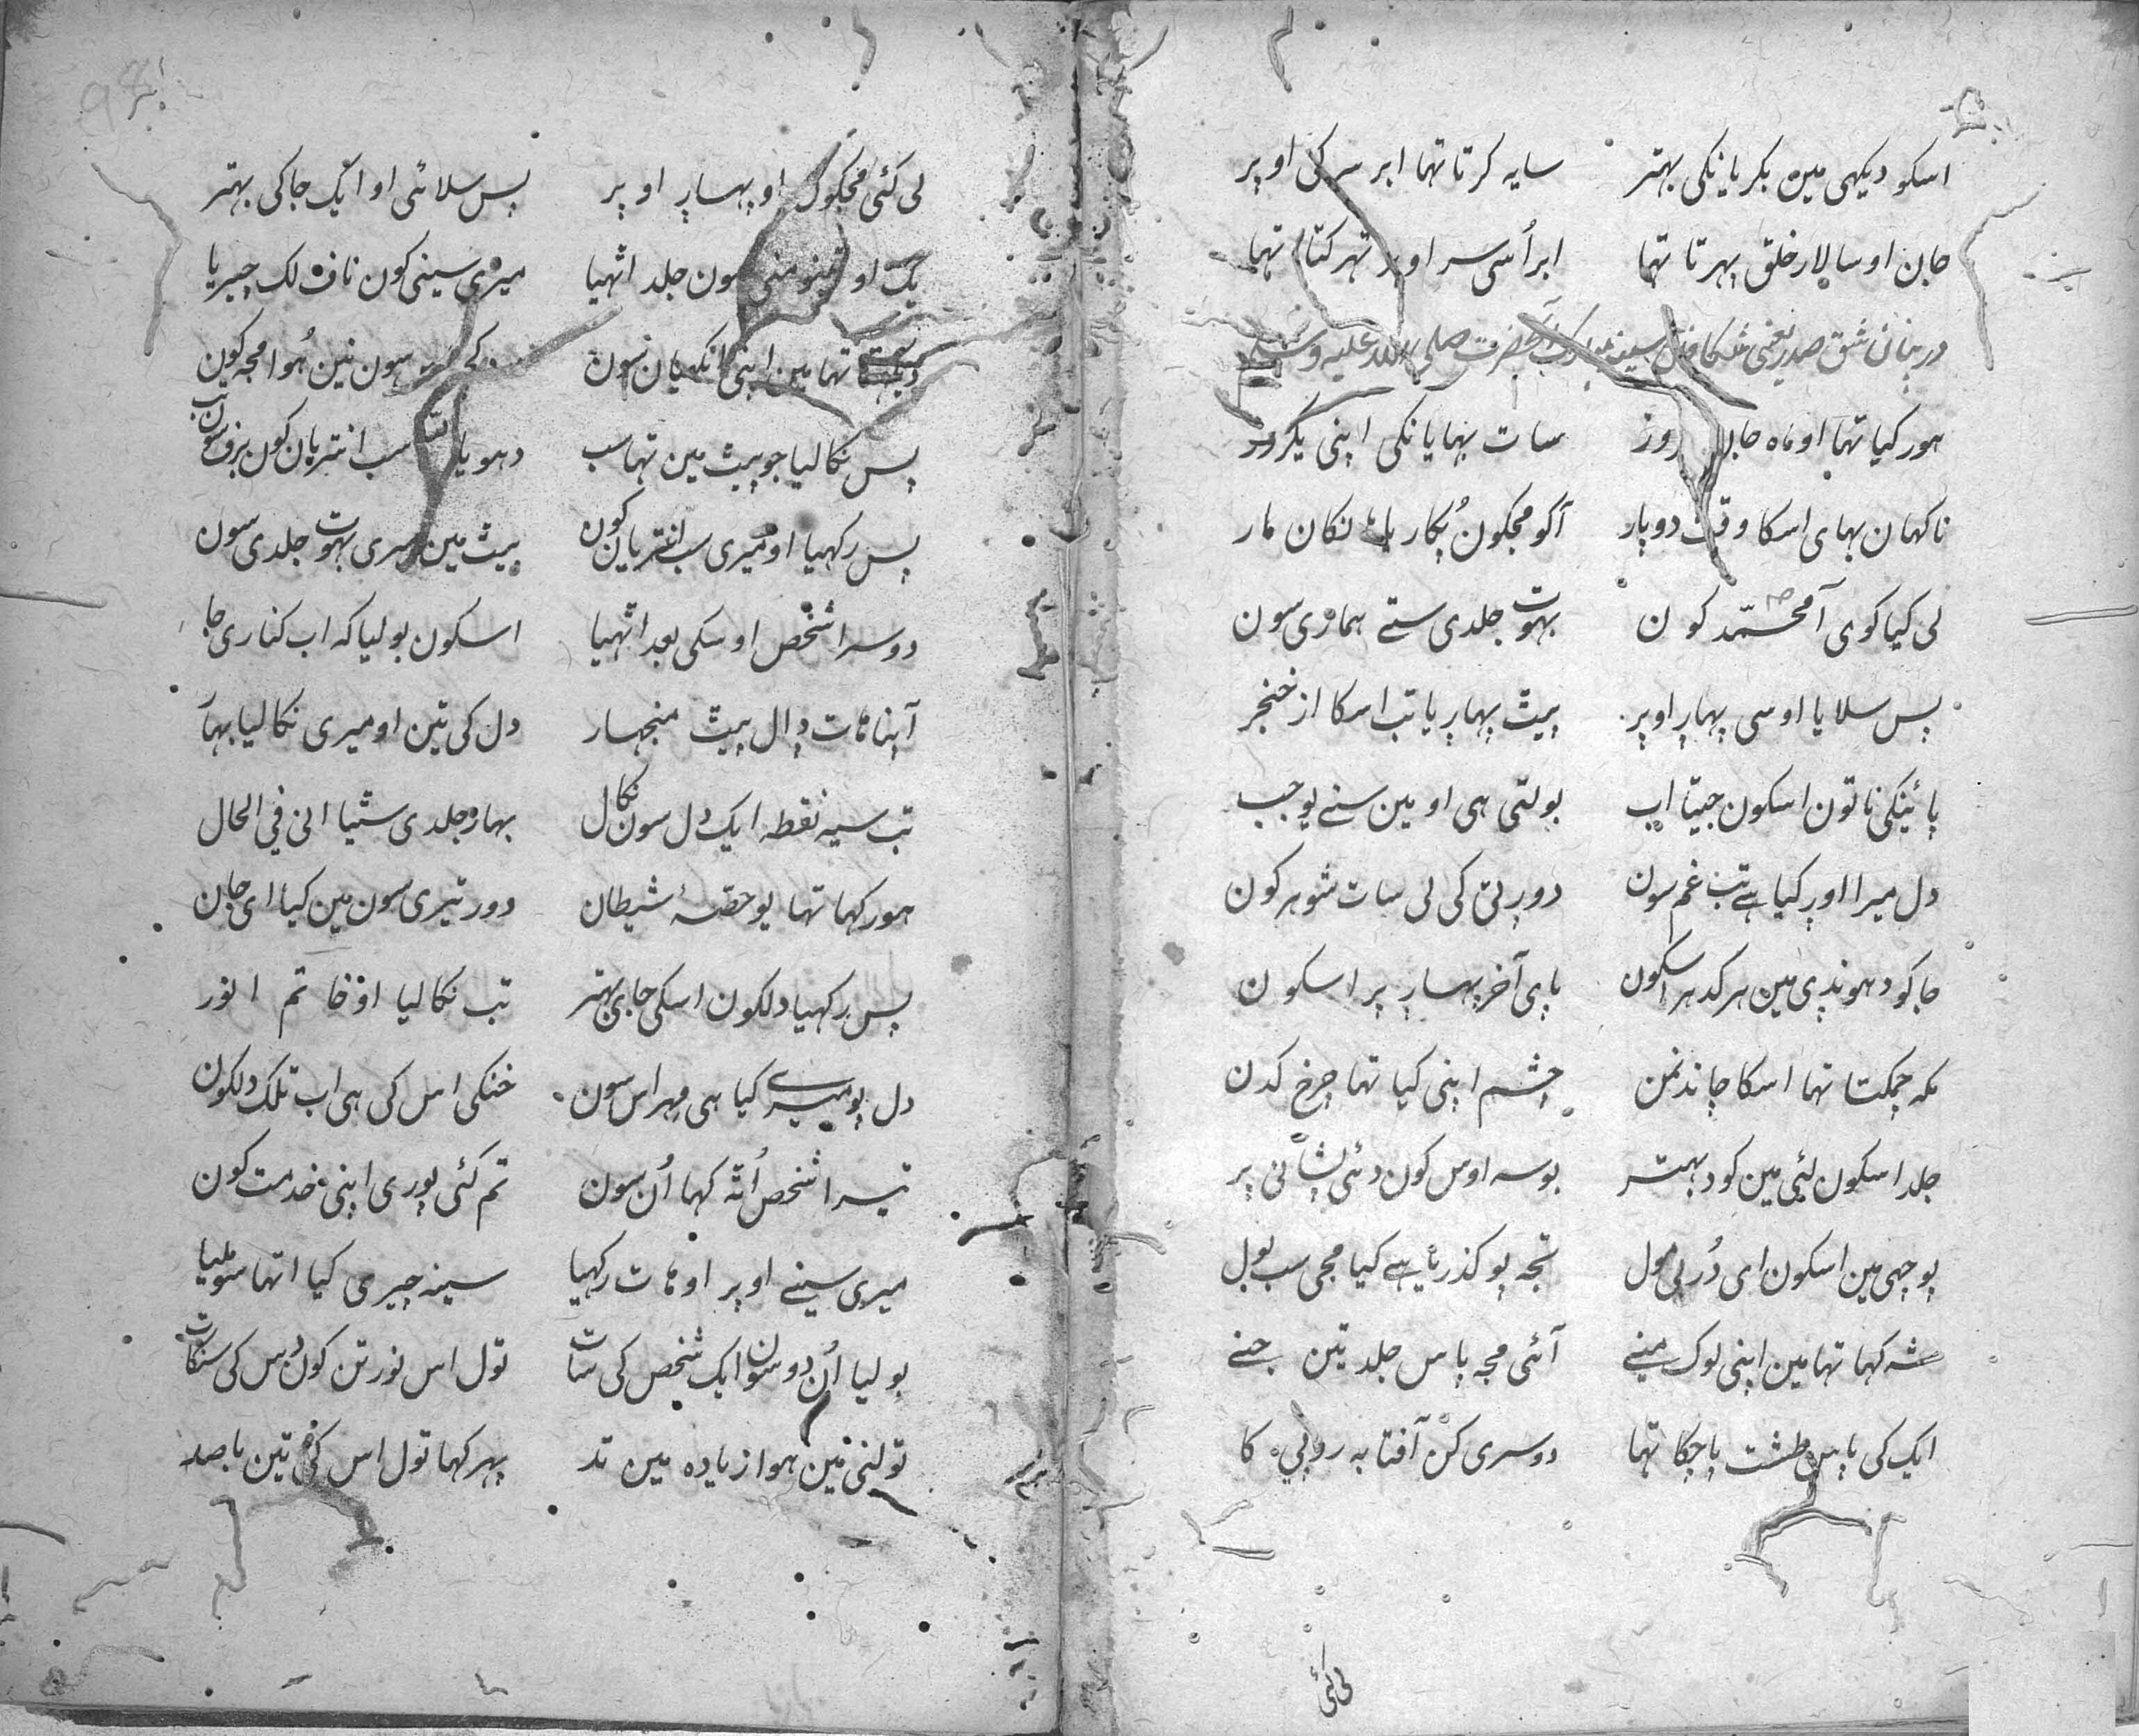 اسکو دیکهی مین بکریانکی بهتر سایه کرتا تها ابر سر کی اوپر
جان او سالار خلق پهرتا تها ابر اُسی سر اوپر تهرکتا تها
در بیان شق صدر یعنی شکافتن سینه مبارک آنحضرت صلی الله علیه وسلم
هور کیا تها او ماه جان روز سات بهایانکی اپنی یکروز
ناکهان بهای اسکا وقت دوپار آکو مجکون پکار یا نکان مار
لی کیا کوی آ محمّد کون بهوت جلدی ستے هماری سون
پس سلایا اوسی پهار اوپر پیٹ پهاریا تب اسکا از خنجر
پائینکی نا تون اسکون جیتا اب بولتی هی او مین سنے یو جب
دل میرا اوڑ کیا ہے تب غم سون دور تی کی لی سات شوهر کون
جاکو دهوندی مین هر کدهر اسکون پای آخر پهار پر اسکون
مکه چمکتا تها اسکا چاند نمن چشم اپنی کیا تها چرخ کدن
جلد اسکون لئی مین کود بهتر بوسه اوس کون دئی پشانی پر
پوچهی مین اسکون ای دُر بی مول تجه پو کذریا ہے کیا مجی سب بول
شه کها تها مین اپنی لوک منے آئی مجه پاس جلد تین جنے
ایک کی پاس طشت پاچکا تها دوسری کن آفتابه روپی کا
لی کئی
لی کئی مجکون او پهار اوپر پس سلائی او ایک جاکی بهتر
یک او تینو منی سون جلد اتهیا میری سینی کون ناف لک چیریا
دیکهتا تها مین اپنی انکهیان سون سون نین هُوا مجه کون
پس نکالیا جو پیٹ مین تها سب دهویا سب انتریان کون برف سون تب
پس رکهیا او میری سب انتریان کون پیٹ مین میری بهوت جلدی سون
دوسرا شخص اوسکی بعد اتهیا اسکون بولیا که اب کناری جا
آپنا هات ڈال پیٹ منجهار دل کی تین او میری نکالیا بهار
تب سیه نقطه ایک دل سون نکال بهار جلدی ستیا انی فی الحال
هور کها تها یو حصّهٔ شیطان دور تیری سون مین کیا ای جان
پس رکهیا دلکون اسکی جای بهتر تب نکالیا او خاتم انور
دل پو میرے کیا هی مهر اس سون خنکی اس کی هی اب تلک دلکون
تیسرا شخص اُٹه کها اُن سون تم کئی پوری اپنی خدمت کون
میری سینے اوپر او هات رکهیا سینه چیری کیا اتها سو ملیا
بولیا اُن دوسون ایک شخص کی سات تول اس نورتن کون دس کی سنکات
تولنی مین هوا زیاده مین تد پهر کها تول اس کی تین با صد